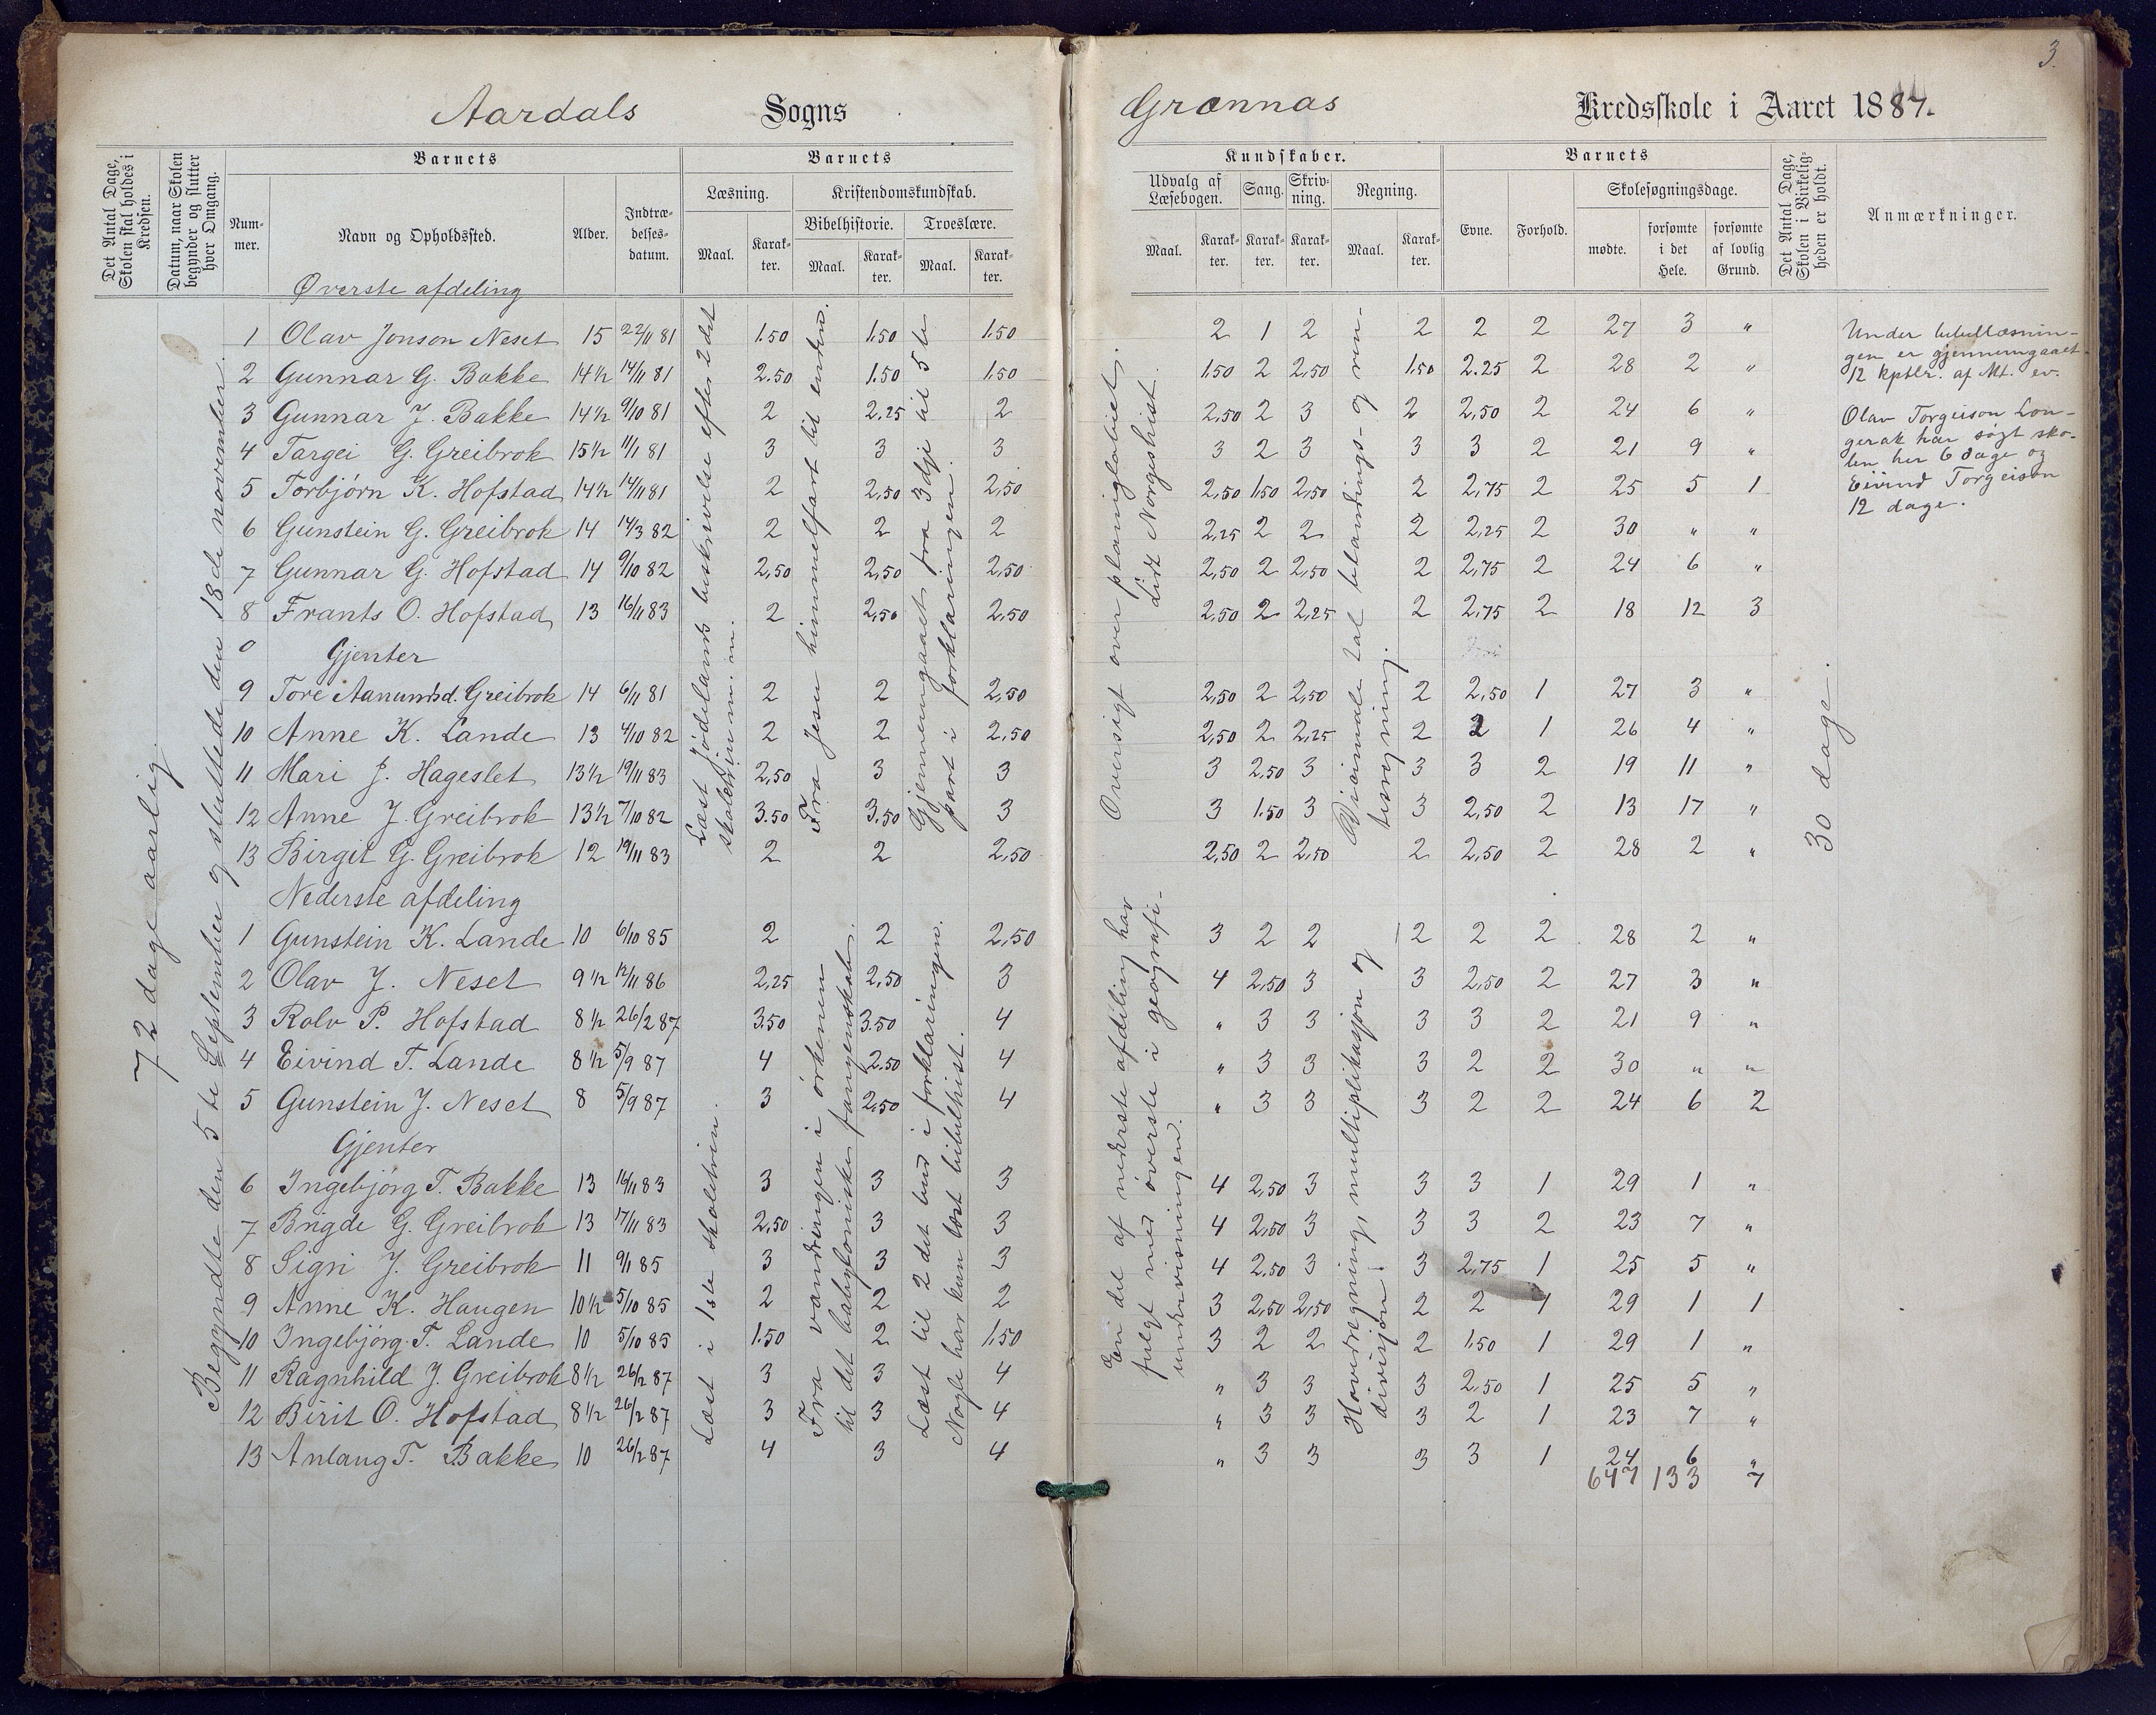 3.
Aardals Sogns
Grænnæs Kredsskole i Aaret 1887.
Det Antal Dage, Skolen skal holdes i Kredsen.
Datum, naar Skolen begynder og slutter hver Omgang.
Barnets
Nummer.
Navn og Opholdssted.
Alder.
Indtrædelsesdatum.
Barnets
Læsning.
Maal.
Karakter.
Kristendomskundskab.
Bibelhistorie.
Maal.
Karakter.
Troeslære.
Maal.
Karakter.
Kundskaber.
Udvalg af Læsebogen.
Maal.
Karakter.
Sang.
Karakter.
Skrivning.
Karakter.
Regning.
Maal.
Karakter.
Barnets
Evne.
Forhold.
Skolesøgningsdage.
mødte.
forsømte i det Hele.
forsømte af lovlig Grund.
Det Antal Dage, Skolen i Virkeligheden er holdt.
Anmærkninger.
72 dage aarlig.
Begyndte den 5te September og sluttede den 18de november.
Øverste afdeling
1 Olav Jonson Neset 15 22/11 81 1.50 1.50 1.50 2 1 2 2 2 2 27 3 "
2 Gunnar G. Bakke 14½ 14/11 81 2.50 1.50 1.50 1.50 2 2,50 1.50 2.25 2 28 2 "
3 Gunnar J. Bakke 14½ 9/10 81 2 2.25 2 2,50 2 3 2 2,50 2 24 6 "
4 Targei G. Greibrok 15½ 11/1 81 3 3 3 3 2 3 3 3 2 21 9 "
5 Torbjørn K. Hofstad 14½ 14/11 81 2 2,50 2,50 2,50 1.50 2,50 2 2,75 2 25 5 1
6 Gunstein G. Greibrok 14 14/3 82 2 2 2 2,25 2 2 2 2,25 2 30 " "
7 Gunnar G. Hofstad 14 9/10 82 2,50 2,50 2,50 2,50 2 2,50 2 2,75 2 24 6 "
8 Frants O. Hofstad 13 16/11 83 2 2,50 2,50 2,50 2 2,25 2 2,75 2 18 12 3
0 Gjenter
9 Tore Aanundsd. Greibrok 14 6/11 81 2 2 2,50 2,50 2 2,50 2 2,50 1 27 3 "
10 Anne K. Lande 13 4/10 82 2 2 2,50 2,50 2 2,25 2 2 1 26 4 "
11 Mari J. Hageslet 13½ 19/11 83 2,50 3 3 3 2,50 3 3 3 2 19 11 "
12 Anne J. Greibrok 13½ 7/10 82 3.50 3.50 3 3 1.50 3 3 2,50 2 13 17 "
13 Birgit G. Greibrok 12 19/11 83 2 2 2,50 2,50 2 2,50 2 2,50 2 28 2 "
Nederste afdeling
1 Gunstein K. Lande 10 6/10 85 2 2 2,50 3 2 2 2 2 2 28 2 "
2 Olav J. Neset 9½ 12/11 86 2,25 2,50 3 4 2,50 3 3 2,50 2 27 3 "
3 Rolv P. Hofstad 8½ 26/2 87 3.50 3.50 4 " 3 3 3 3 2 21 9 "
4 Eivind T. Lande 8½ 5/9 87 4 2.50 4 " 3 3 3 2 2 30 " "
5 Gunstein J. Neset 8 5/9 87 3 2,50 4 " 3 3 3 2 2 24 6 2
Gjenter
6 Ingebjørg T. Bakke 13 16/11 83 3 3 3 4 2,50 3 3 3 1 29 1 "
7 Brigde G. Greibrok 13 17/11 83 2,50 3 3 4 2,50 3 3 3 2 23 7 "
8 Signi J. Greibrok 11 9/1 85 3 3 3 4 2,50 3 3 2,75 1 25 5 "
9 Anne K. Haugen 10½ 5/10 85 2 2 2 3 2,50 2,50 2 2 1 29 1 1
10 Ingebjørg T. Lande 10 5/10 85 1.50 2 1.50 3 2 2 2 1.50 1 29 1 "
11 Ragnhild J. Greibrok 8½ 26/2 87 3 3 4 " 3 3 3 2,50 1 25 5 "
12 Birit O. Hofstad 8½ 26/2 87 3 3 4 " 3 3 3 2 1 23 7 "
13 Anlaug T. Bakke 10 26/2 87 4 3 4 " 3 3 3 3 1 24 6 "
647 133 7
Læst Jødelands beskrivelse efter 2det skoletrin m. m.
Fra Jesu himmelfart til enden.
Gjennemgaaet fra 3dje til 5te part i forklaringen.
Læst i 1ste skoletrin.
Fra vandringen i ørkenen til det babyloniske fangenskab.
Læst til 2det bud i forklaringen. Nogle har kun læst bibelhist.
Oversigt over planiglobiet, lidt Norgeshist.
En del af nederste afdeling har fulgt med øverste i geografiundervisningen.
Decimale tal blandings- og rentesregning.
Hovedregning, multiplikasjon og divisjon.
30 dage.
Under bibellæsnin-
gen er gjennemgaaet
12 kptlr. af Mt. ev.
Olav Torgeison Lon-
gerak har søgt sko-
len her 6 dage og
Eivind Torgeison
12 dage.